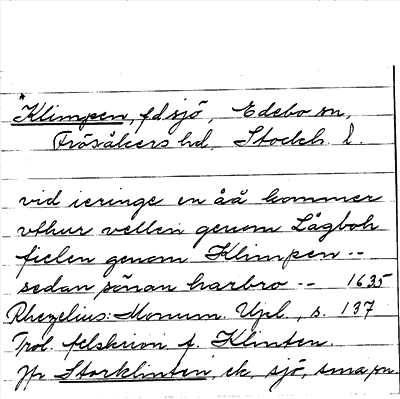 *Klimpen, f d sjö, Edebo sn,
Frösåkers hd, Stockh. l.
vid ieringe en åå kommer
vthur vellen genom Lågboh
fielen genom Klimpen --
sedan sönan harbro -- 1635
Rhezelius: Monum. Upl., s. 137
Trol. felskrivn f. Klinten.
Jfr Storklinten, ek, sjö, sma sn